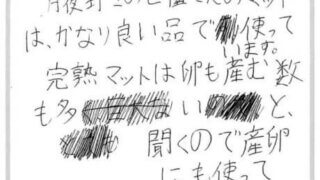 は、かなり良い品で使って
います。
完熟マットは卵も産む数
も多い と、
聞くので産卵
にも使って